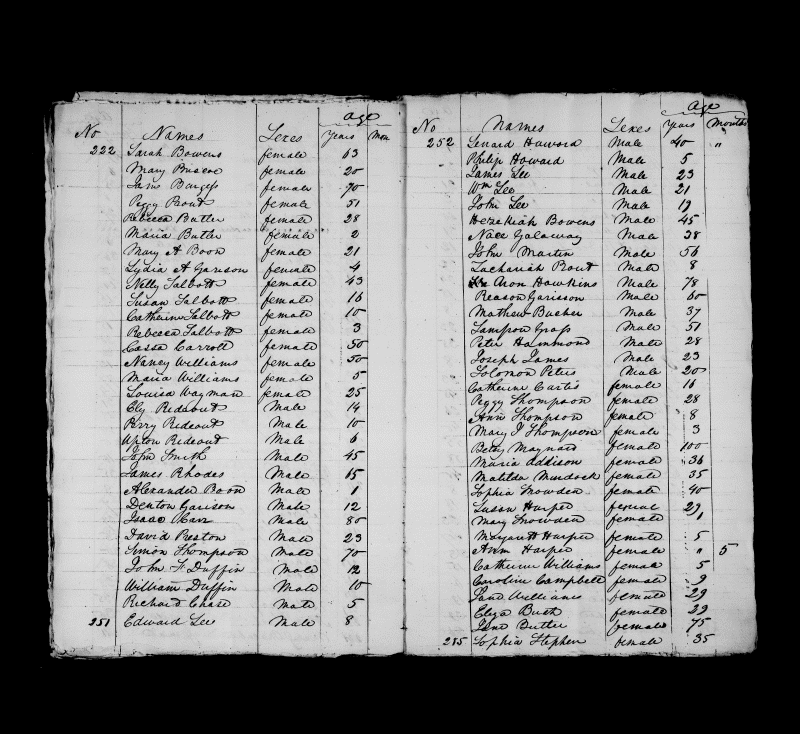 age
No Names Sexes Years Mon
222 Sarah Bowens female 63
Mary Briscoe female 20
Janus Burgess female 70
Peggy Prout female 51
Rebecca Butler female 28
Maria Butler female 2
Mary A Boon female 21
Lydia A Garison female 4
Nelly Talbott female 43
Susan Talbott female 16
Catherine Talbott female 10
Rebecca Talbott female 3
Cassa Carroll female 50
Nancy Williams female 50
Maria Williams female 5
Louisa Wayman female 25
Ely Rideout Male 14
Perry Rideout Male 10
Upton Rideout Male 6
John Smith Male 45
James Rhodes Male 65
Alexander Boon Male 1
Denton Garison Male 12
Isaac Male 80
David Preston Male 23
Simon Thompson Male 70
John F. Duffin Male 12
William Duffin Male 10
Richard Chase Male 5
251 Edward Lee Male 8
age
No Names Sexes Years Months
252 Lenard Howard Male 40 "
Philip Howard Male 5
James Lee Male 23
Wm Lee Male 21
John Lee Male 19
Hezekiah Bowens Male 45
Nace Galaway Male 38
John Martin Male 56
Zachariah Prout Male 8
Aron Hawkins Male 78
Reason Garisson Male 60
Mathew Male 37
Sampson Gross Male 51
Peter Hammond Male 28
Joseph James Male 23
Solomon Peters Male 20
Catherine Curtis female 16
Peggy Thompson female 28
Ann Thompson female 8
Mary J Thompson female 3
Betsy Maynard female 100
Maria Addison female 36
Matilda Murdock female 35
Sophia Snowden female 40
Susan Harper female 29
Mary Snowden female 1
Margarett Harper female 5
Ann Harper female " 5
Catherine Williams female 5
Caroline Campbell female 9
Jane Williams female 29
Eliza Bush female 29
Jane Butler female 75
285 Sophia Stephen female 35